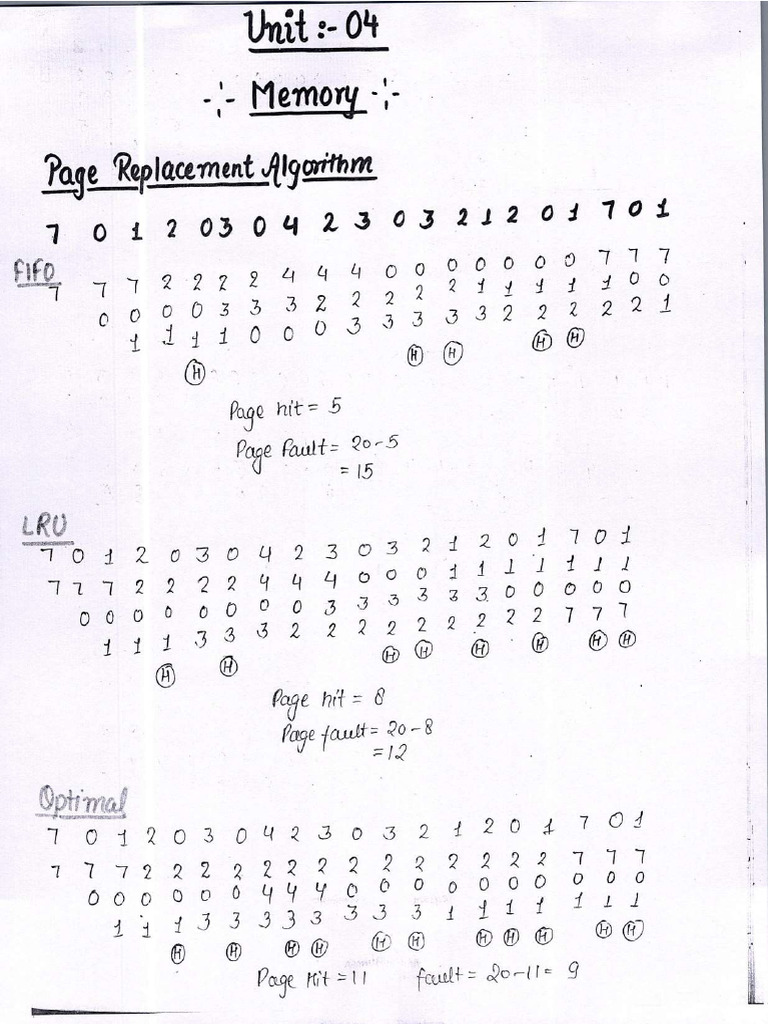 Unit :- 04
-:- Memory -:-
Page Replacement Algorithm
7 0 1 2 0 3 0 4 2 3 0 3 2 1 2 0 1 7 0 1
FIFO
7 7 7 2 2 2 2 4 4 4 0 0 0 0 0 0 0 7 7 7
0 0 0 0 3 3 3 2 2 2 2 2 1 1 1 1 1 0 0
1 1 1 1 0 0 0 3 3 3 3 3 2 2 2 2 2 1
H H H H H
Page hit = 5
Page Fault = 20-5
= 15
LRU
7 0 1 2 0 3 0 4 2 3 0 3 2 1 2 0 1 7 0 1
7 7 7 2 2 2 2 4 4 4 0 0 0 1 1 1 1 1 1 1
0 0 0 0 0 0 0 0 3 3 3 3 3 3 0 0 0 0 0
1 1 1 3 3 3 2 2 2 2 2 2 2 2 2 7 7 7
H H H H H H H H
Page hit = 8
Page fault = 20-8
= 12
Optimal
7 0 1 2 0 3 0 4 2 3 0 3 2 1 2 0 1 7 0 1
7 7 7 2 2 2 2 2 2 2 2 2 2 2 2 2 2 7 7 7
0 0 0 0 0 0 4 4 4 0 0 0 0 0 0 0 0 0 0
1 1 1 3 3 3 3 3 3 3 3 1 1 1 1 1 1 1
H H H H H H H H H H H
Page Hit = 11 fault = 20-11 = 9